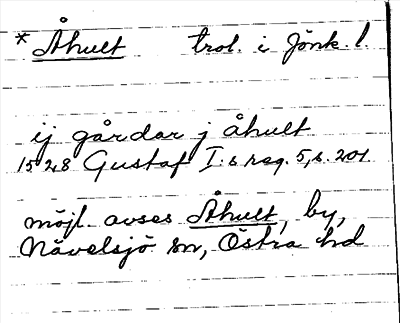 * Åhult trol. i Jönk. l.
ij gårdar j åhult
1528 Gustaf I:s reg. 5, s. 201.
möjl. avses Åhult, by,
Nävelsjö sn, Östra hd